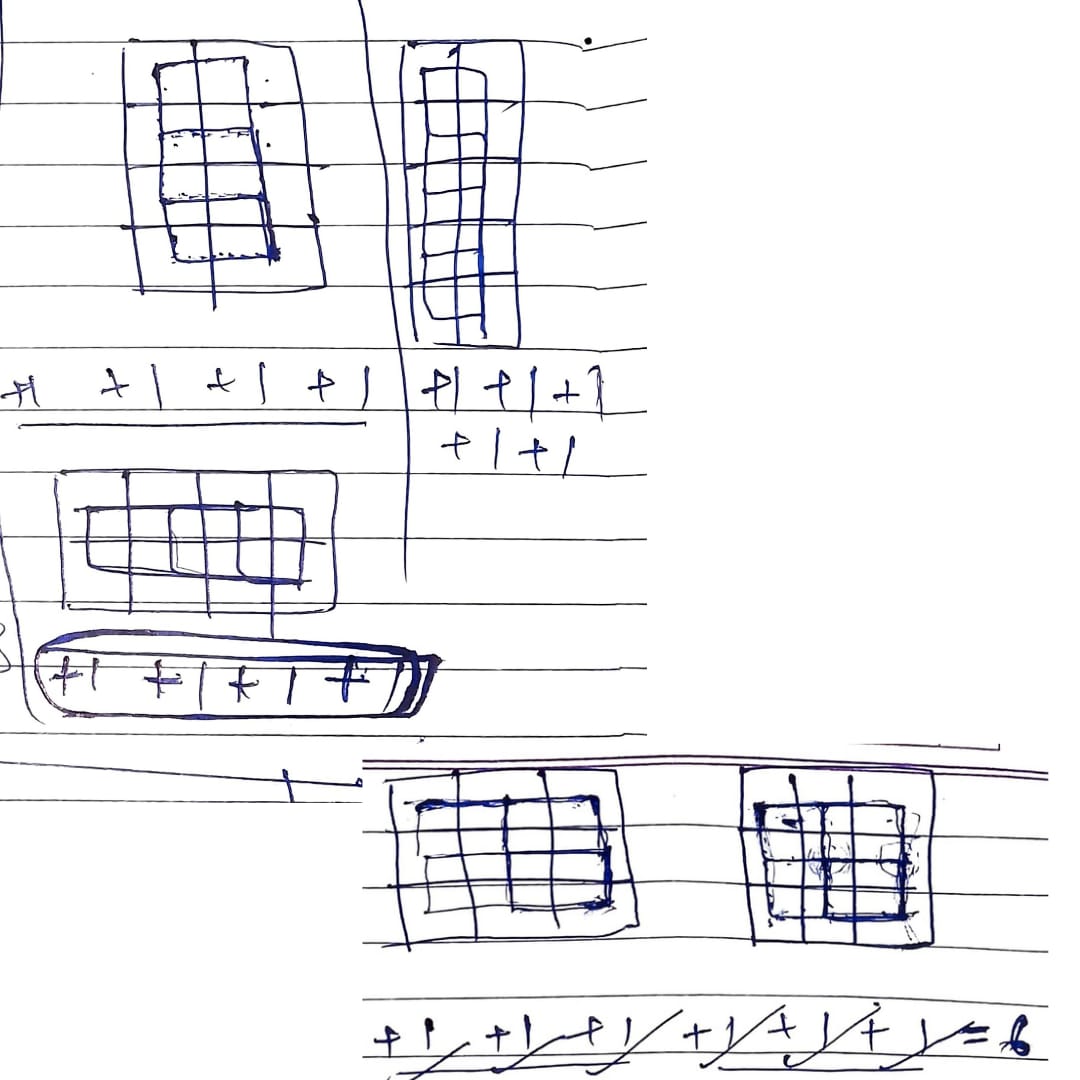 +1 +1 +1 +1
+1 +1 +1
+1 +1
+1 +1 +1 +1
+1 +1 +1 +1 +1 +1 = 6